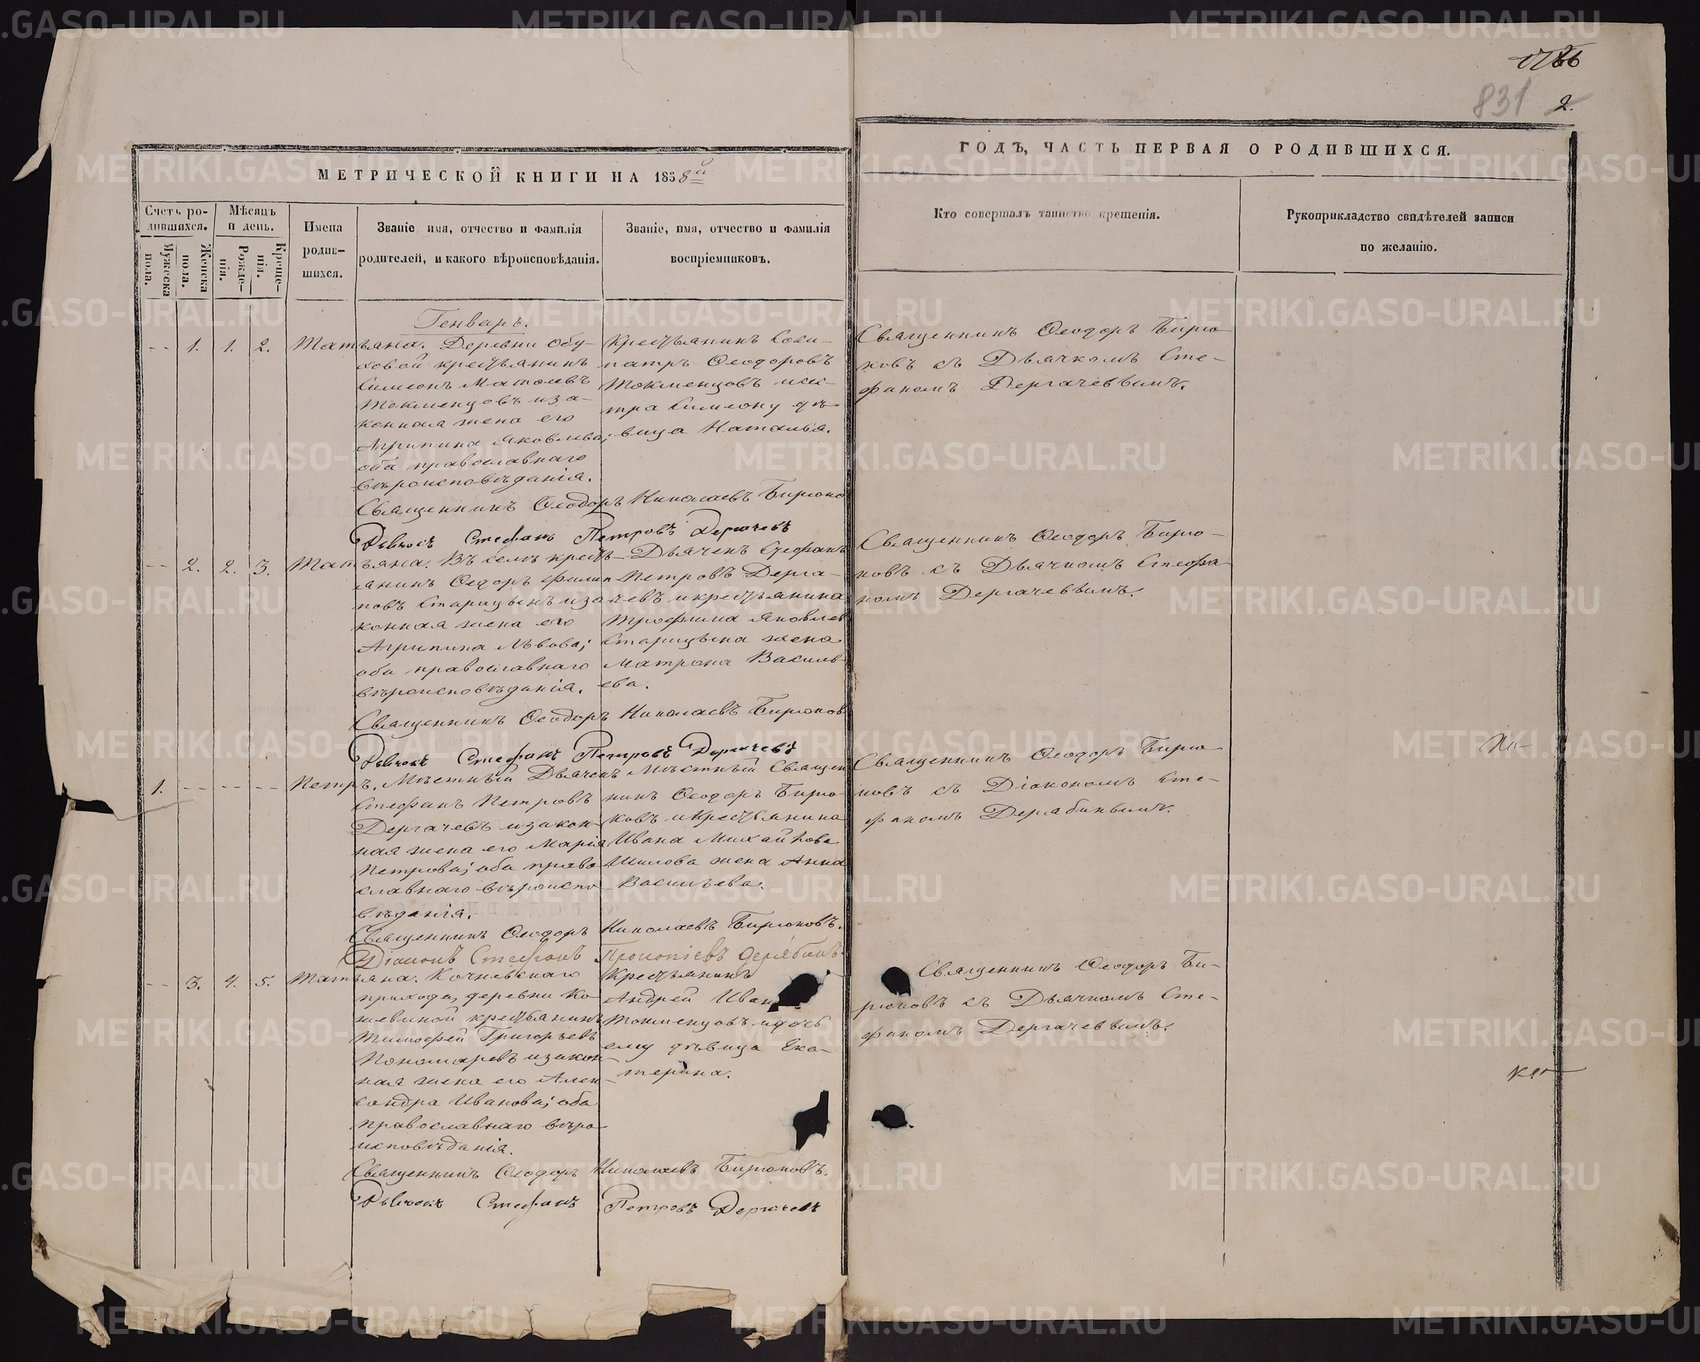 831
2.
МЕТРИЧЕСКОЙ КНИГИ НА 1858й
ГОДЪ, ЧАСТЬ ПЕРВАЯ О РОДИВШИХСЯ.
Счетъ ро-
дившихся.
Мужеска
пола.
Женска
пола.
Мѣсяцъ
и день.
Рожде-
нія.
Креще-
нія.
Имена
родив-
шихся.
Званіе, имя, отчество и фамилія
родителей, и какого вѣроисповѣданія.
Званіе, имя, отчество и фамилія
воспріемниковъ.
Кто совершалъ таинство крещенія.
Рукоприкладство свидѣтелей записи
по желанію.
Генварь.
-- 1. 1. 2. Татьяна.
Деревни Обу-
ховой крестьянинъ
Симеонъ Матѳеевъ
Токменцовъ и за-
конная жена его
Агрипина Яковлева;
оба православнаго
вѣроисповѣданія.
Крестьянинъ Соси-
патръ Ѳеодоровъ
Токменцовъ и сес-
тра Симеону дѣ-
вица Наталья.
Священникъ Ѳеодоръ Бирю-
ковъ съ Дьячкомъ Сте-
фаномъ Дергачевымъ.
Священникъ Ѳеодоръ Николаевъ Бирюко
Дьячекъ Стефанъ Петровъ Дергачевъ
-- 2. 2. 3. Татьяна.
В селѣ кресть-
янинъ Ѳедоръ Филип-
повъ Старицынъ и за-
конная жена его
Агрипина Львова;
оба православнаго
вѣроисповѣданія.
Дьячекъ Стефанъ
Петровъ Дерга-
чевъ и крестьянина
Трофима Яковлев
Старицына жена
Матрона Василь-
ева.
Священникъ Ѳеодоръ Бирю-
ковъ съ Дьячкомъ Стефа-
номъ Дергачевымъ.
Священникъ Ѳеодоръ Николаевъ Бирюковъ
Дьячекъ Стефанъ Петровъ Дергачевъ
1. ---- Петръ.
Мѣстный Дьячекъ
Стефанъ Петровъ
Дергачевъ и закон-
ная жена его Марія
Петрова; оба право-
славнаго вѣроиспо-
вѣданія.
Мѣстный Священ
никъ Ѳеодоръ Бирю-
ковъ и крестьянина
Ивана Михайлова
Шилова жена Анна
Васильева.
Священникъ Ѳеодоръ Бирю-
ковъ съ Діакономъ Сте-
фаномъ Дерябинымъ.
Священникъ Ѳеодоръ Николаевъ Бирюковъ.
Діаконъ Стефанъ Прокопіевъ Дерябинъ
-- 3. 4. 5. Татьяна.
Кочневскаго
прихода, деревни Ко-
шевиной крестьянинъ
Тимофей Григорьевъ
Пономаревъ и закон-
ная жена его Алек-
сандра Иванова; оба
православнаго вѣро-
исповѣданія.
Крестьянинъ
Андрей Иван
Токменцовъ и дочь
ему дѣвица Ека-
терина.
Священникъ Ѳеодоръ Би-
рюковъ съ Дьячкомъ Сте-
фаномъ Дергачевымъ.
Священникъ Ѳеодоръ Николаевъ Бирюковъ.
Дьячекъ Стефанъ Петровъ Дергачевъ
METRIKI.GASO-URAL.RU